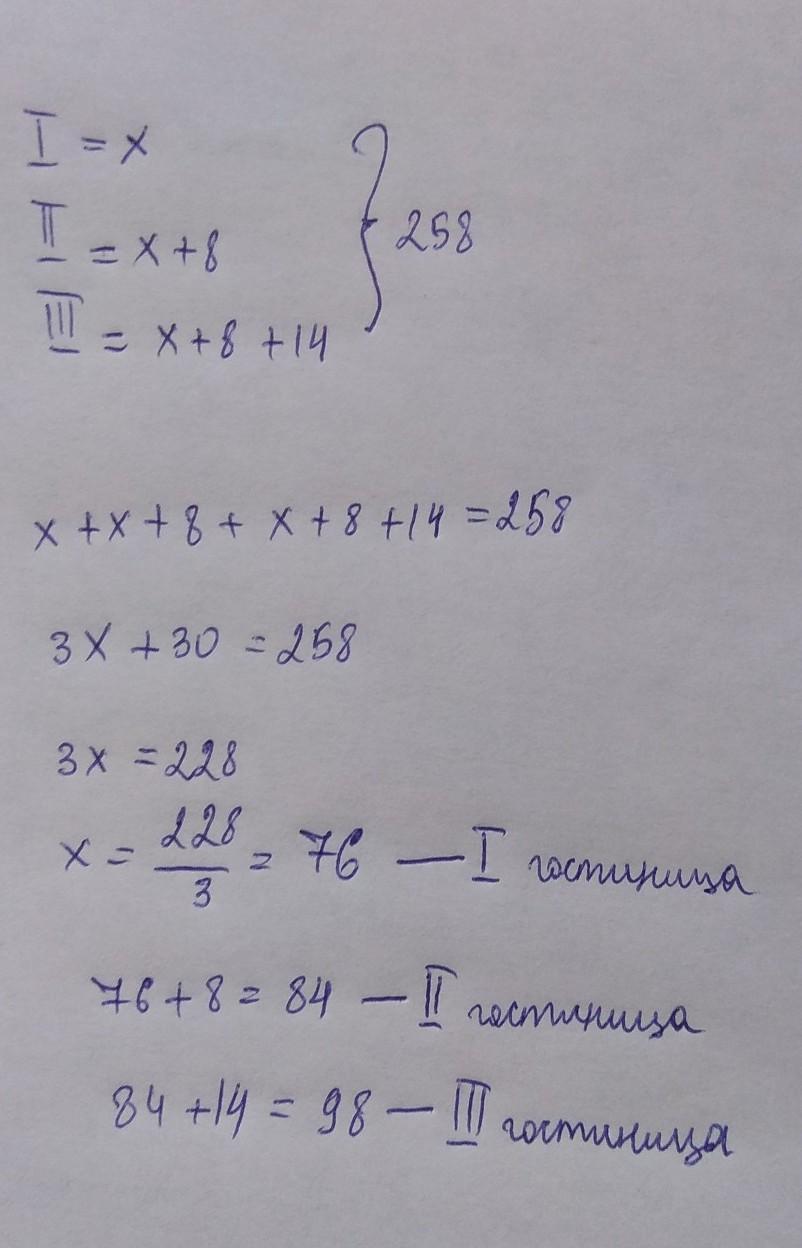 I = x
II = x + 8
III = x + 8 + 14
} 258
x + x + 8 + x + 8 + 14 = 258
3x + 30 = 258
3x = 228
x = 228/3 = 76 — I гостиница
76 + 8 = 84 — II гостиница
84 + 14 = 98 — III гостиница